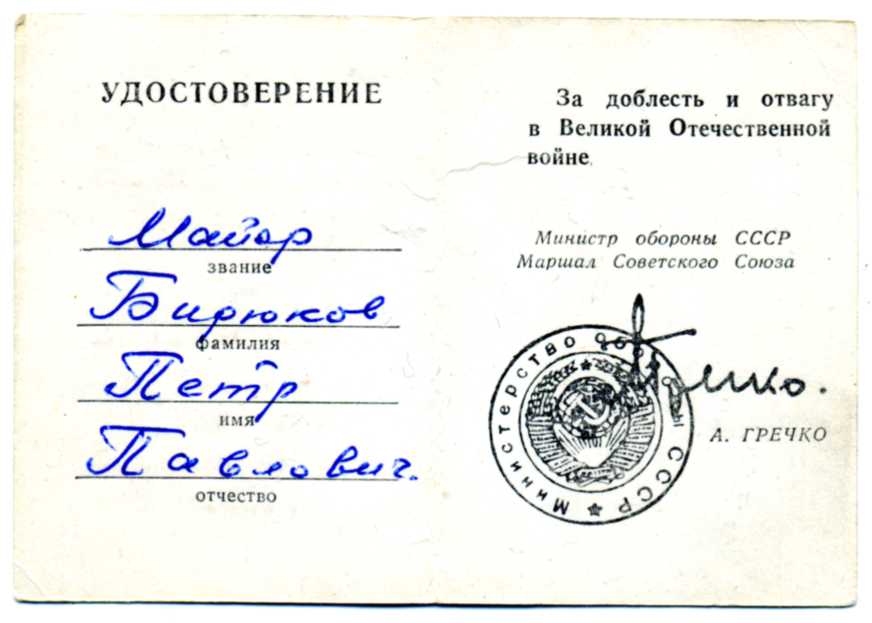 УДОСТОВЕРЕНИЕ
Майор
звание
Бирюков
фамилия
Петр
имя
Павлович.
отчество
За доблесть и отвагу
в Великой Отечественной
войне.
Министр обороны СССР
Маршал Советского Союза
Министерство Обороны СССР
Гречко.
А. ГРЕЧКО